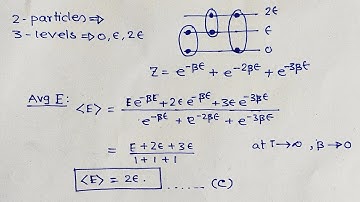 2-particles ⇒
3-levels ⇒ 0, ϵ, 2ϵ
2ϵ
ϵ
0
Z = e^{-βϵ} + e^{-2βϵ} + e^{-3βϵ}
Avg E: ⟨E⟩ = (Ee^{-βE} + 2ϵ e^{-βϵ} + 3ϵ e^{-3βϵ}) / (e^{-βϵ} + e^{-2βϵ} + e^{-3βϵ})
= (E + 2ϵ + 3ϵ) / (1 + 1 + 1) at T→∞, β→0
⟨E⟩ = 2ϵ. ...... (C)